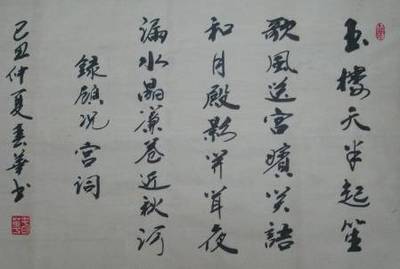 玉樓天半起笙
歌風送宮嬪笑語
和月殿影開聞夜
漏水晶簾卷近秋河
錄顧況宮詞
己丑仲夏春華书